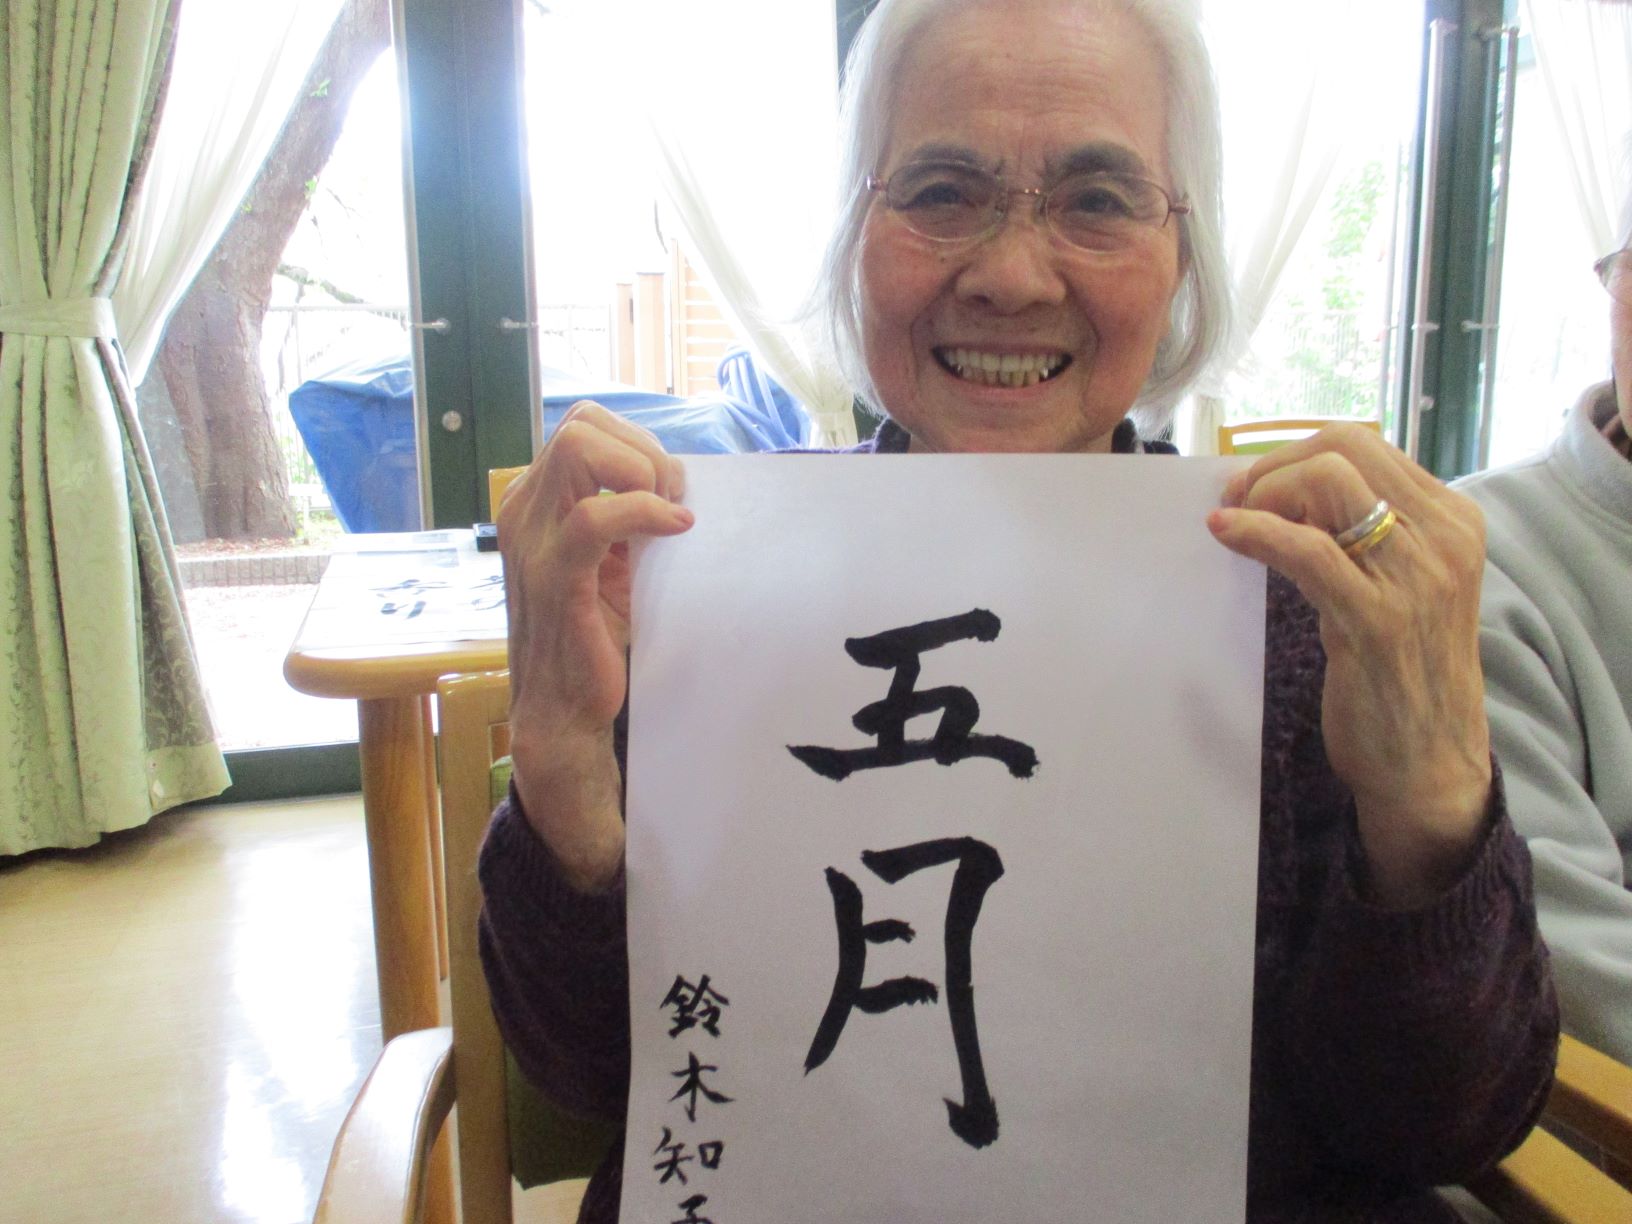 五月
鈴木知子